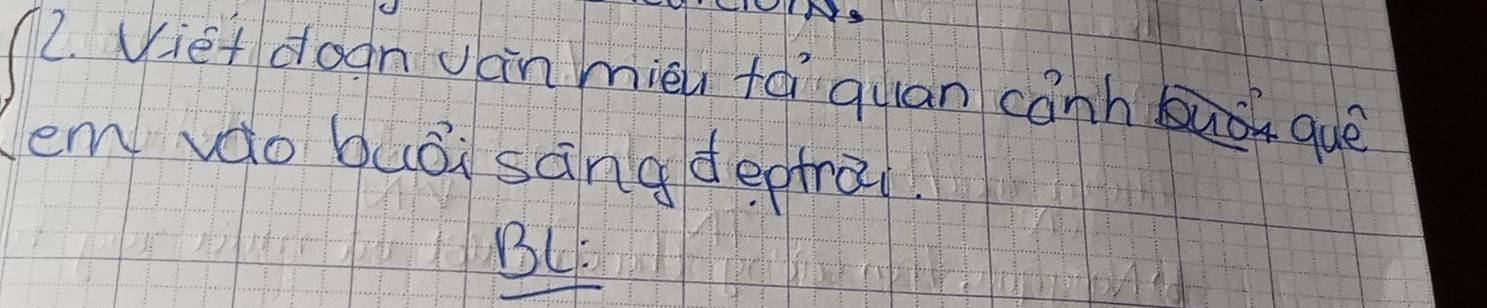 2. Viết đoạn văn miêu tả quan cảnh quê
em vào buổi sáng đẹp trời.
BL: